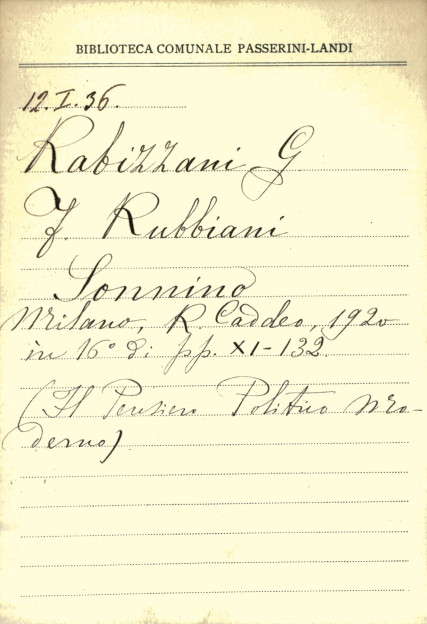 BIBLIOTECA COMUNALE PASSERINI-LANDI
12.I.36.
Rabizzani G
F. Rubbiani
Sonnino
Milano, R. Caddeo, 1920
in 16° di pp. XI-132.
(Il Pensiero Politico Mo-
derno)